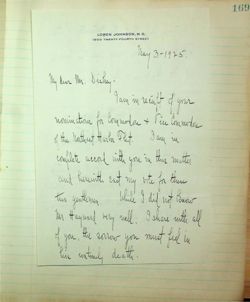 169
LOREN JOHNSON, M.D.
1200 TWENTY-FOURTH STREET
May 3-1925.
My dear Mr.
I am in receipt of your
nominations for Commodore & Vice Commodore
of the Harbor Fleet. I am in
complete accord with you in this matter
and herewith cast my vote for these
two gentlemen. While I did not know
Mr Hayward very well. I share with all
of you, the sorrow you must feel in
his untimely death.